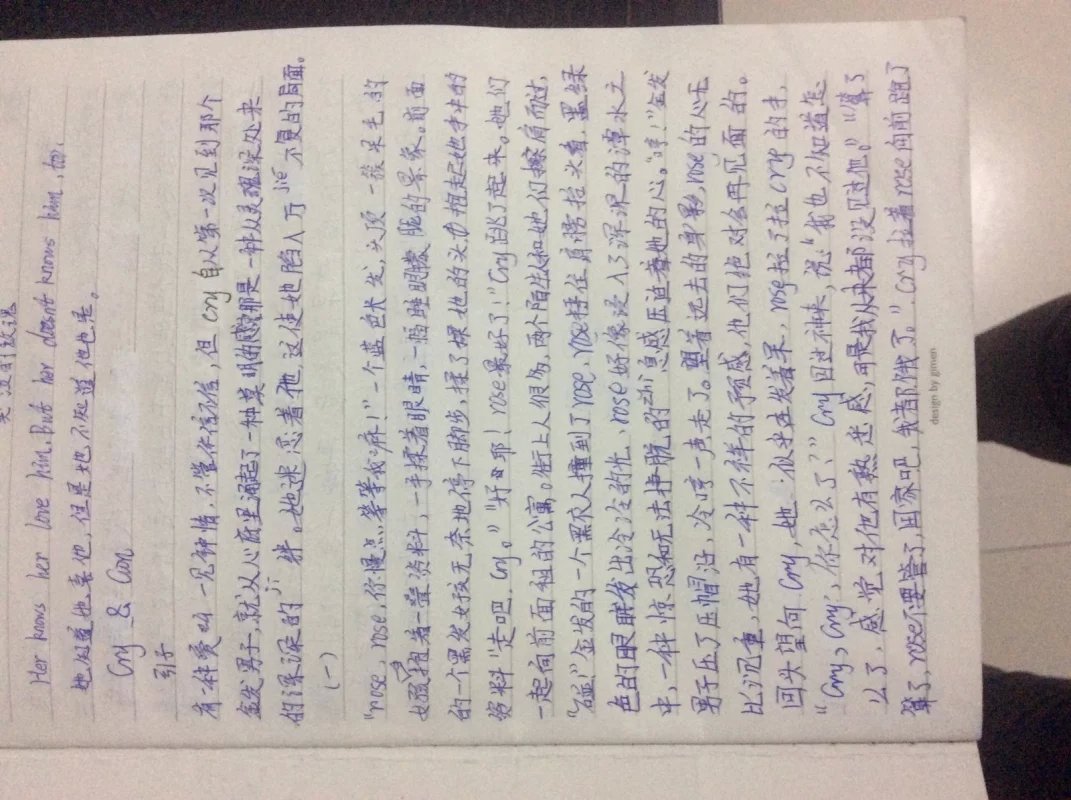 Her knows her love him. But her doesn't knows him, too.
她知道她喜他，但是她不知道他也是。
Cry & Can
引子
有一种爱叫一见钟情，不管你信不信，但Cry自从第一次见到那个
金发男子，就从心底里涌起了一种莫明的感觉那是一种从灵魂深处来
的深深的 羁绊。她迷恋着他，这使她陷入万jie不复的局面。
（一）
"rose，rose，你慢点，等等我嘛！"一个蓝色状发，头顶一簇呆毛的
女孩抱着一叠资料，一手揉着眼睛，一幅睡眼朦胧的景象。前面
的一个黑发女孩无奈地停下脚步，揉了揉她的头 抱起她手中的
资料"走吧，Cry。""好耶！rose最好了！"Cry跳了起来。她们
一起向前面租的公寓。街上人很多，两个陌生人和她们擦肩而过，
"碰！"金发的一个黑衣人撞到了rose，rose稳住身情抬头看，墨绿
色的眼眸发出冷冷的光，rose好像浸入了深深的潭水之
中，一种惊恐和无法挣脱的 息感压迫着她的心。"哼！"金发
男子压了压帽沿，冷哼一声走了。望着远去的身影，rose的心无
比沉重，她有一种不祥的预感，他们绝对会再见面的。
回头望向Cry，她 似乎在发着呆，rose拉了拉Cry的手，
"Cry，Cry，你怎么了？"Cry回过神来，说："我也不知道怎
么了，感觉对他有熟悉感，可是我从来都没见过他。""算了
算了，rose不要管了，回家吧，我都饿了。"Cry拉着rose向前跑了
design by gimen